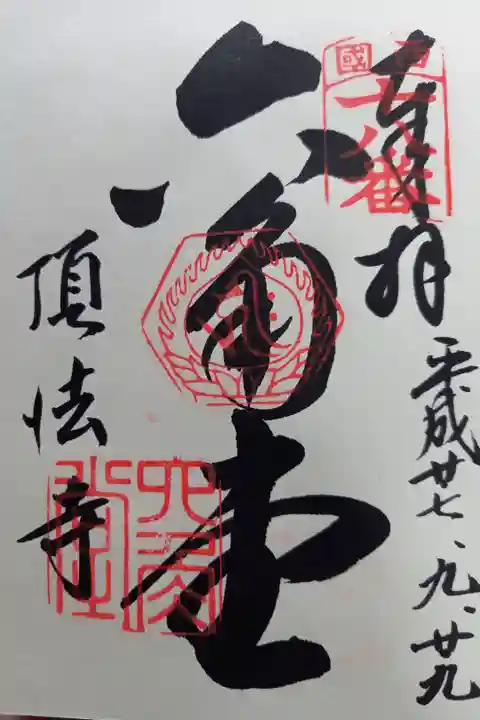 奉拝
平成廿七、九、廿九
西國
十八番
六角堂
六角堂
頂法寺